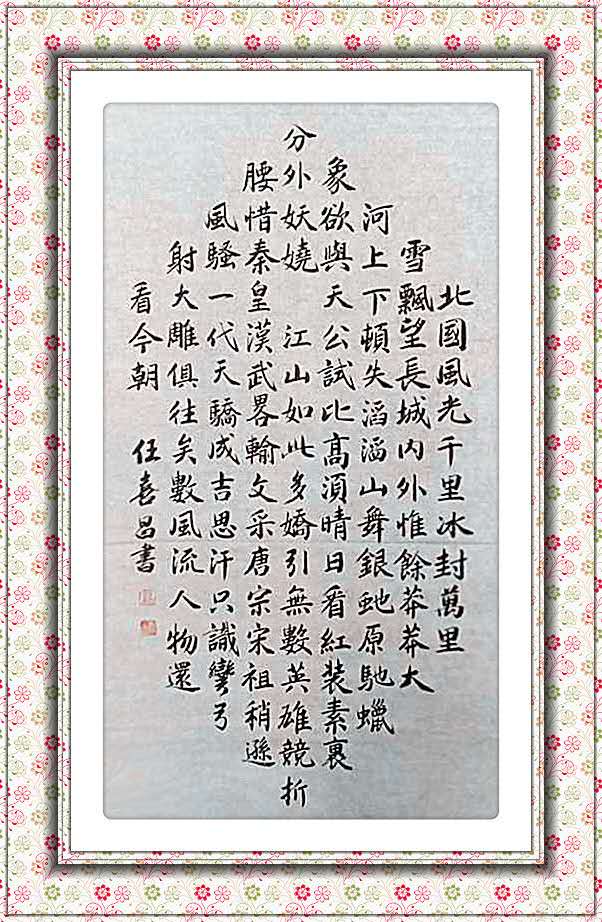 北國風光千里冰封萬里
雪飄望長城內外惟餘莽莽大
河上下頓失滔滔山舞銀虵原馳蠟
象欲與天公試比高湏晴日看紅裝素裹
分外妖嬈 江山如此多嬌引無數英雄競折
腰惜秦皇漢武畧輸文采唐宗宋祖稍遜
風騷一代天驕成吉思汗只識彎弓
射大雕俱往矣數風流人物還
看今朝 任喜昌書